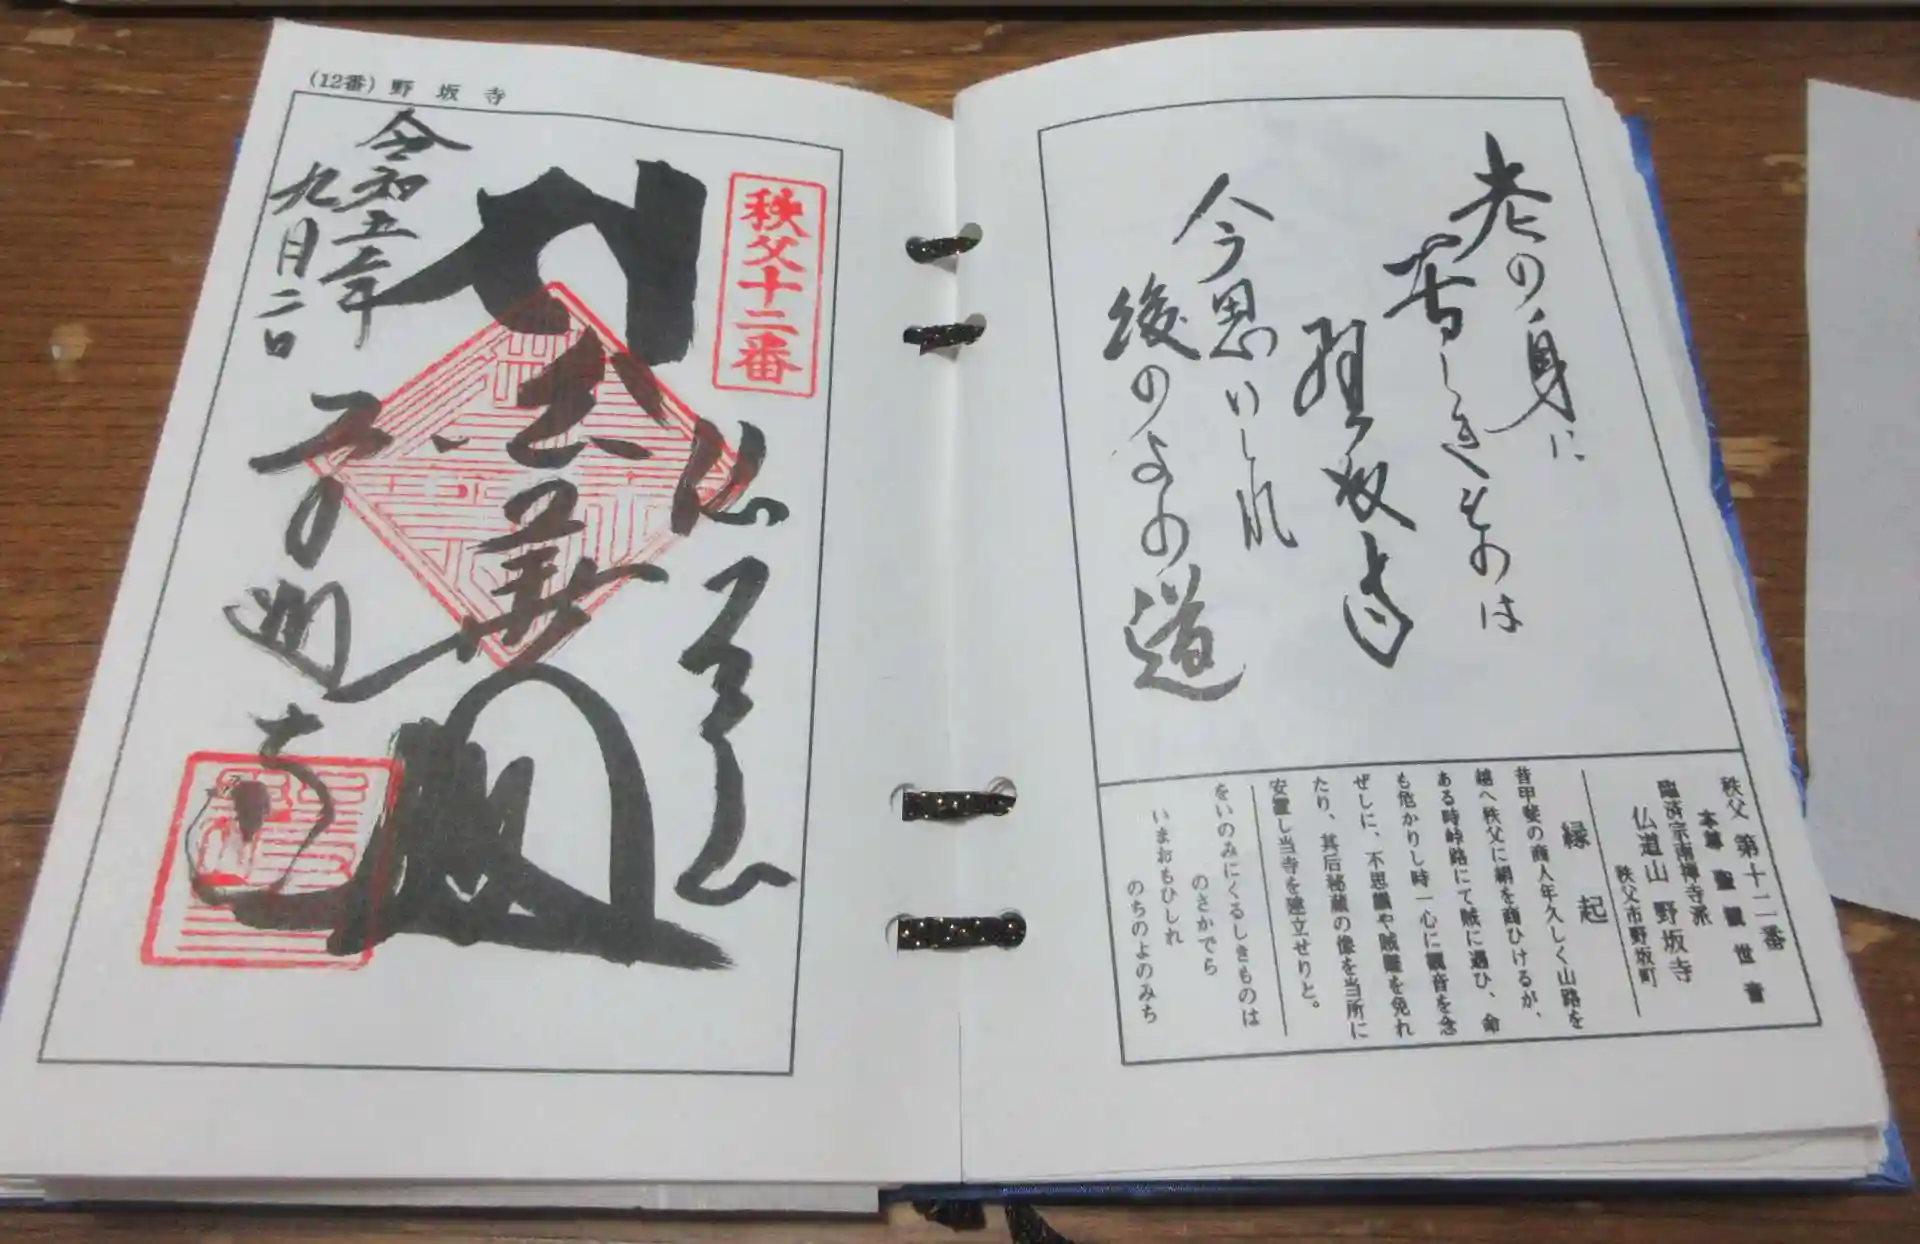 (12番)野坂寺
秩父十二番
令和五年
九月二日
老の身に
苦しきものは
野坂寺
今思いしれ
後のよの道
秩父 第十二番
本尊 聖観世音
臨済宗南禅寺派
仏道山 野坂寺
秩父市野坂町
縁起
昔甲斐の商人年久しく山路を
越へ秩父に絹を商ひけるが、
ある時峠路にて賊に遇ひ、命
も危かりし時一心に観音を念
ぜしに、不思議や賊難を免れ
たり、其后秘蔵の像を当所に
安置し当寺を建立せりと。
をいのみにくるしきものは
のさかでら
いまおもひしれ
のちのよのみち